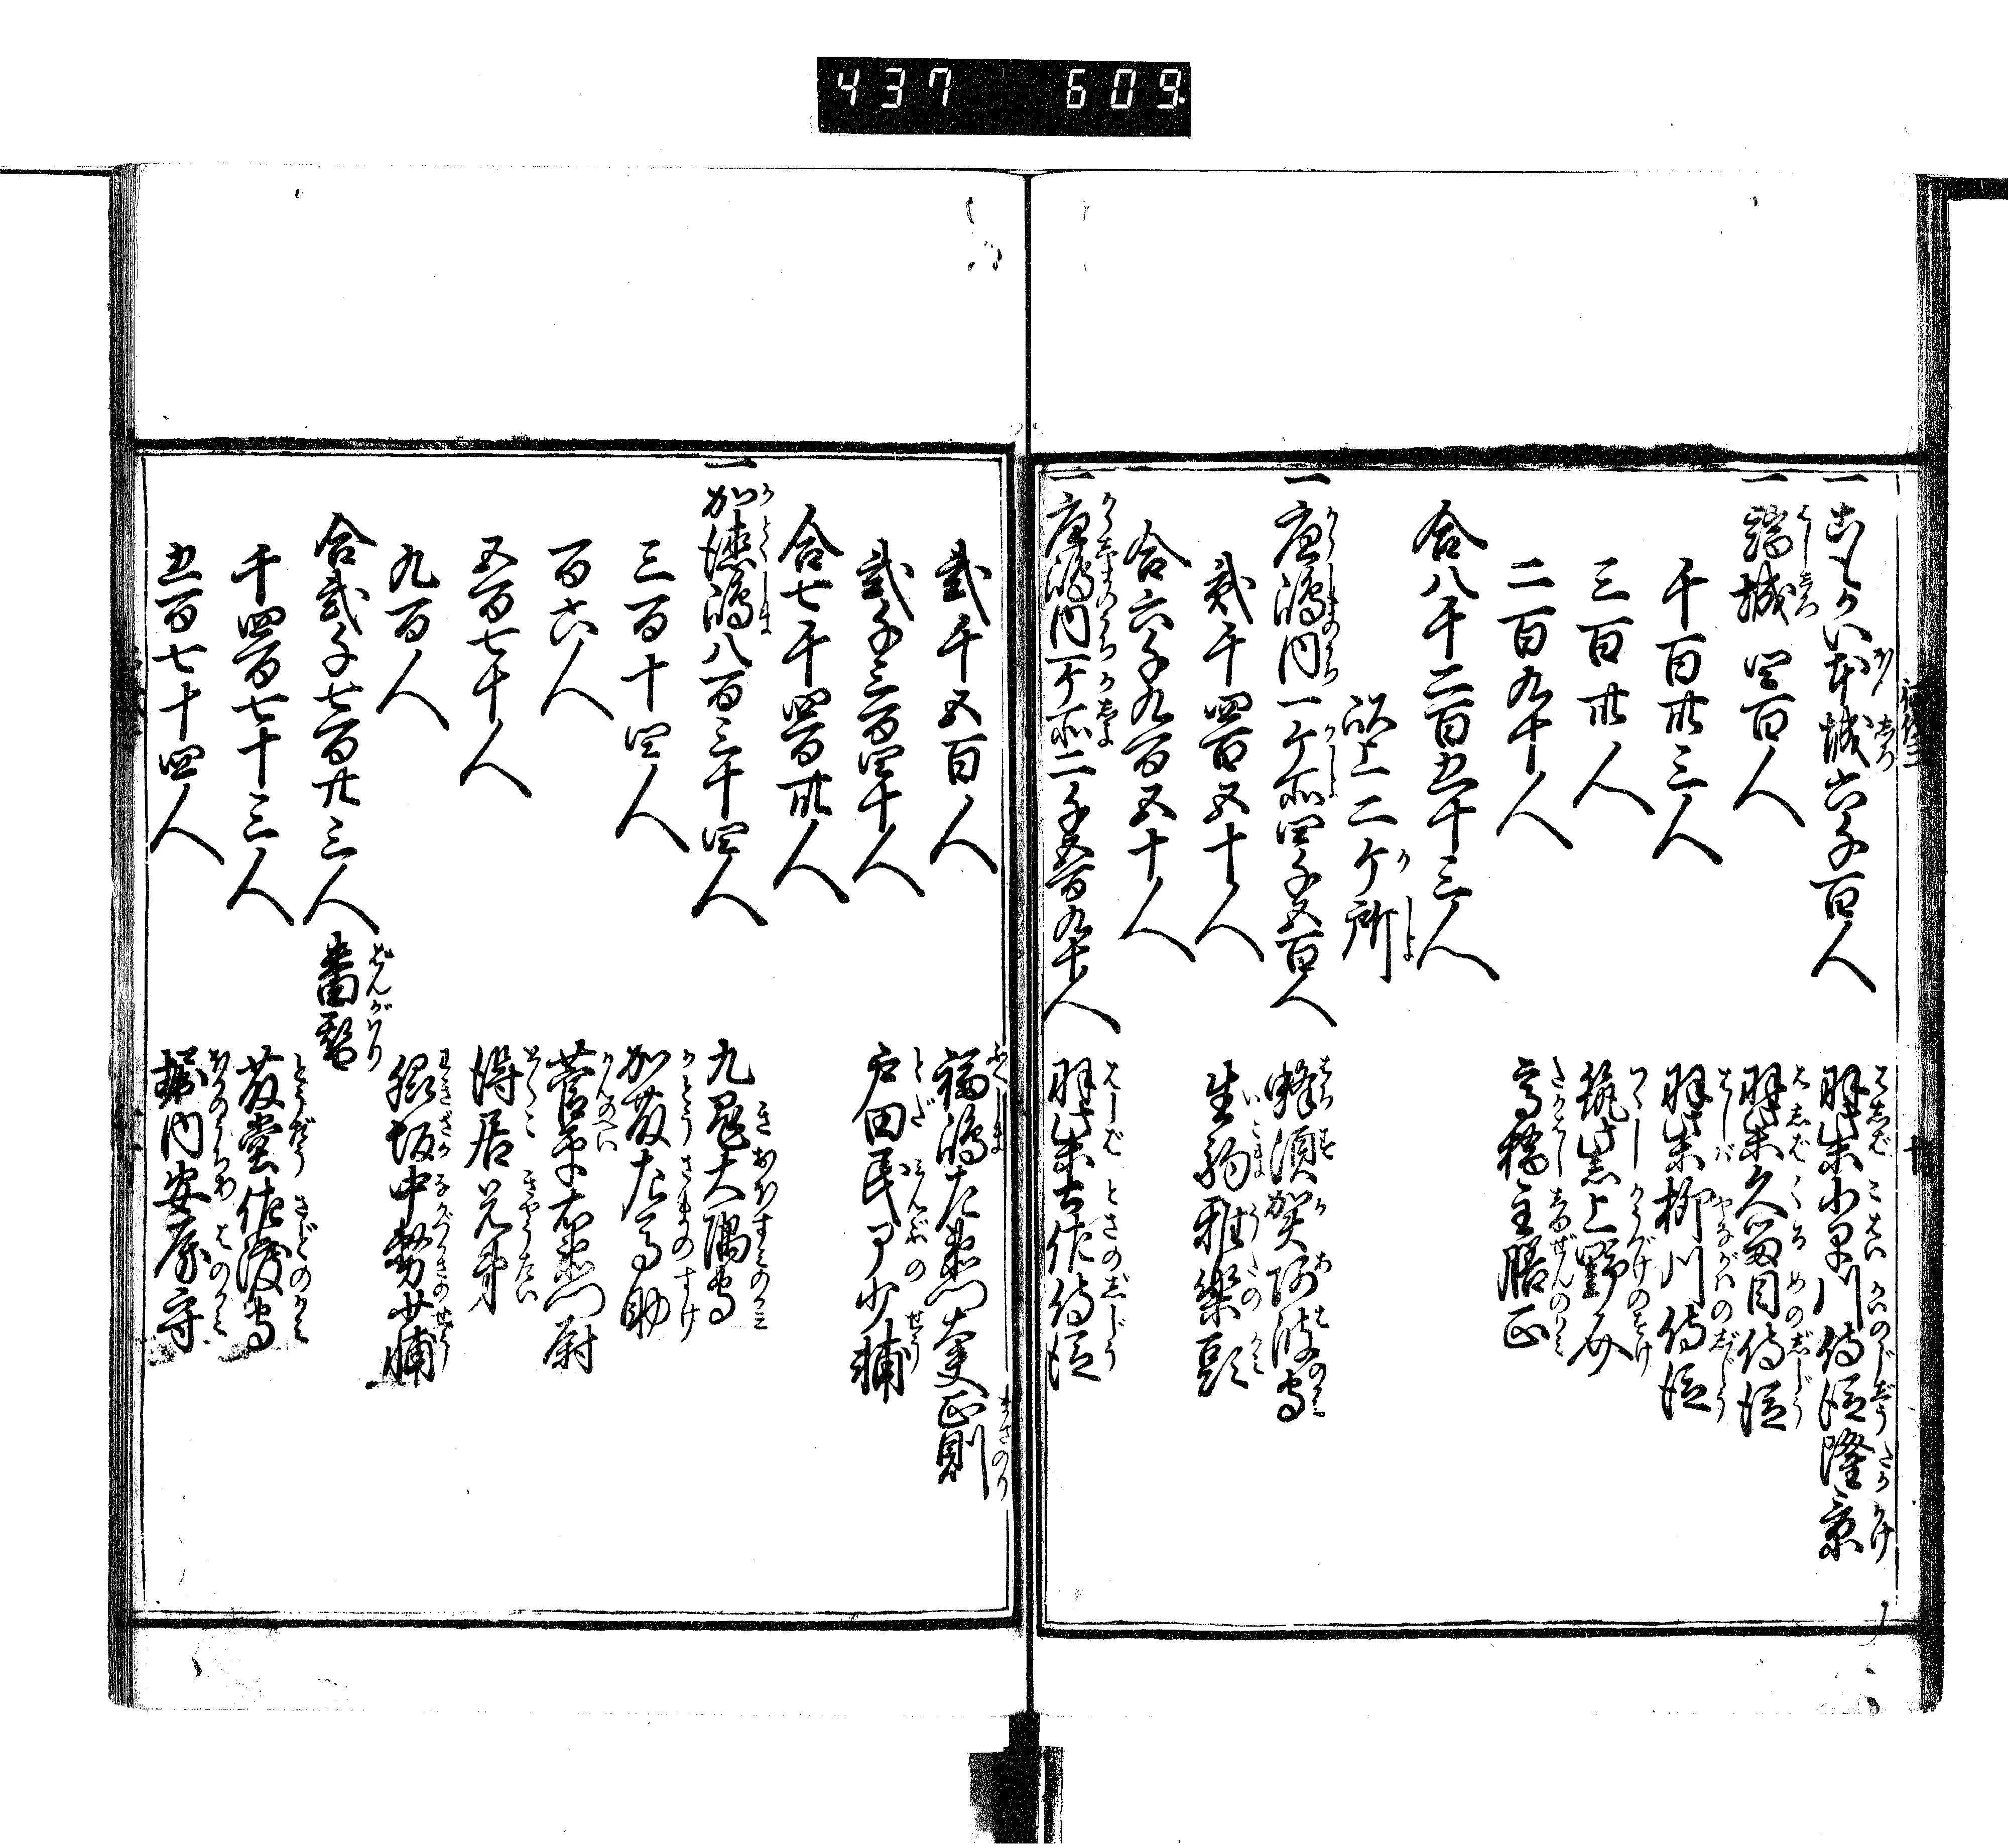 437 609
一こもかい本城六千百人 羽柴小早川侍従隆景
一端城 四百人 羽柴久留目侍従
千百卅三人 羽柴柳川侍従
三百卅人 筑紫上野介
二百九十人 高橋主膳正
合八千二百五十三人
以上二ケ所
一唐嶋内一ケ所四千五百人 蜂須賀阿波守
弐千四百五十人 生駒雅楽頭
合六千九百五十人
一唐嶋内一ケ所二千五百九十人 羽柴土佐侍従
弐千五百人 福嶋左衛門大夫正則
弐千三百四十人 戸田民部少輔
合七千四百卅人
一加徳嶋八百三十四人 九鬼大隅守
三百十四人 加藤左馬助
百六人 菅平右衛門尉
五百七十人 得居兄弟
九百人 脇坂中務少輔
合弐千七百廿三人 番替
千四百七十三人 藤堂佐渡守
五百七十四人 堀内安房守